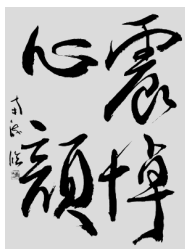 震悼
心顏